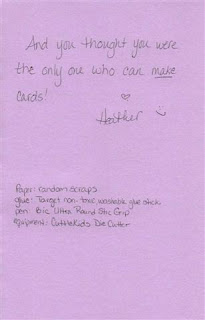 And you thought you were
the only one who can make
cards!
Heather
Paper: random scraps
glue: Target non-toxic washable glue stick
pen: Bic Ultra Round Stic Grip
equipment: CuttleKids Die Cutter